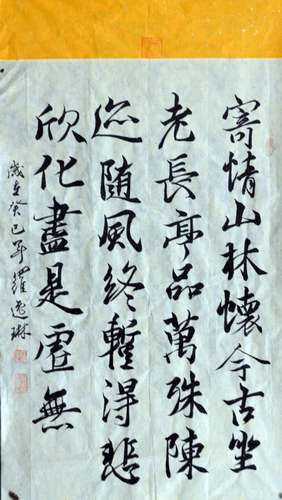 寄情山林懷今古坐
老長亭品萬殊陳
迹随風終暫得悲
欣化盡是虛無
歲在癸巳年羅逸琳